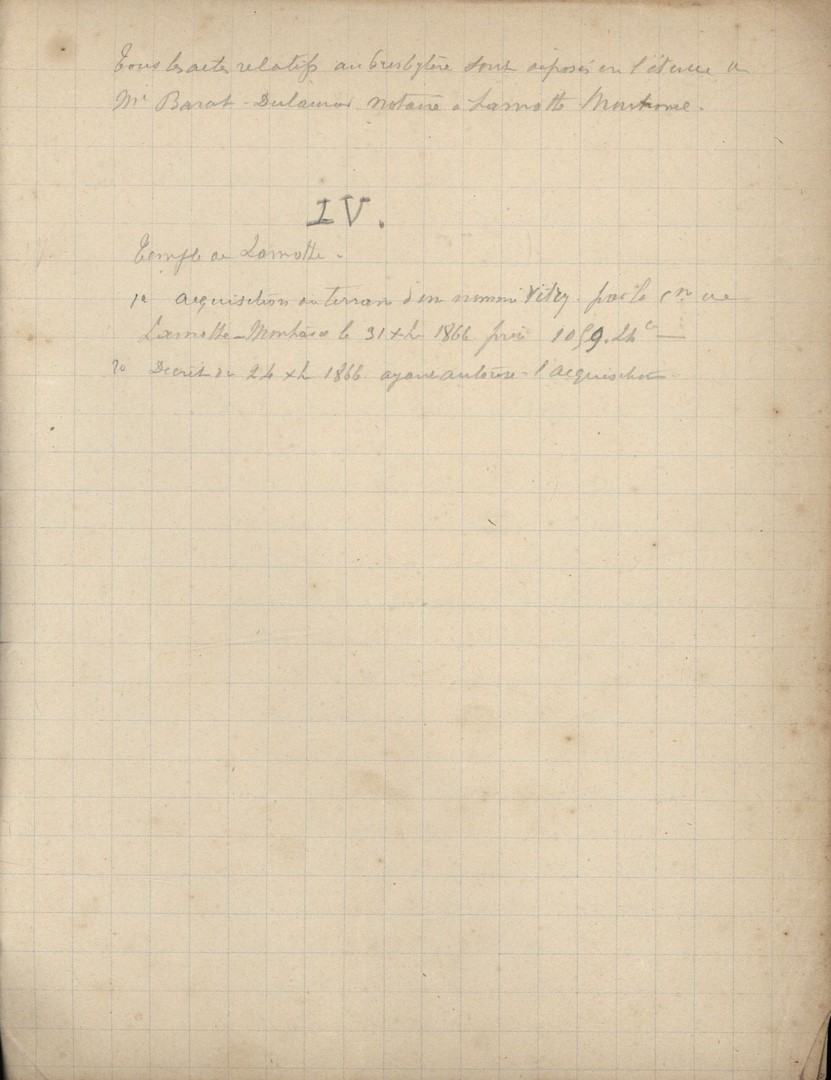 Tous les actes relatifs au Presbytère sont déposés en l'étude de
Mr Barat-Dulaurier notaire à Lamotte Montravel.
IV.
Temple de Lamotte.
1º acquisition du terrain d'un nommé Vitry par le Cre de
Lamotte-Montravel le 31 xbre 1866 prix 1059.24c
2º Décret du 24 xbre 1866 ayant autorisé l'acquisition